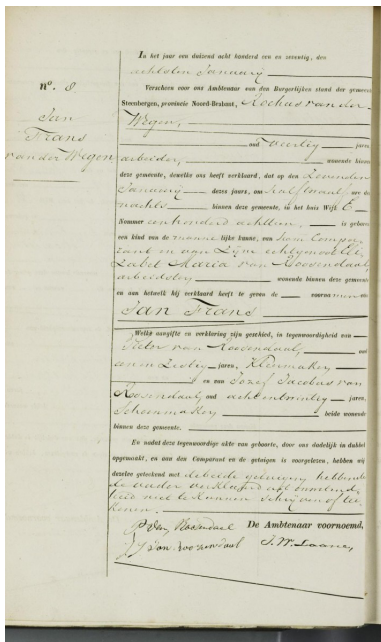 In het jaar een duizend acht honderd een en zeventig, den
achtsten Januarij
Verscheen voor ons Ambtenaar van den Burgerlijken stand der gemeente
Steenbergen, provincie Noord-Brabant, Rochus van der
Wegen,
oud veertig jaren,
arbeider, wonende binnen
deze gemeente, dewelke ons heeft verklaard, dat op den Zevenden
Januarij dezes jaars, om half twaalf ure des
nachts binnen deze gemeente, in het huis Wijk E
Nummer een honderd achttien, is geboren
een kind van de mannelijke kunne, van hem Compa-
rant en van zijne echtgenoote Eli-
zabet Maria van Roosendaal,
arbeidster wonende binnen deze gemeente
en aan hetwelk hij verklaard heeft te geven de voornamen van
Jan Frans
Welke aangifte en verklaring zijn geschied, in tegenwoordigheid van
Pieter van Roosendaal, oud
een en zestig jaren, Kleermaker
en van Jozef Jacobus van
Roosendaal, oud acht en twintig jaren,
Schoenmaker beide wonende
binnen deze gemeente.
En nadat deze tegenwoordige akte van geboorte, door ons dadelijk in dubbel
opgemaakt, en aan den Comparant en de getuigen is voorgelezen, hebben wij
dezelve geteekend met de beide getuigen, hebbende
de vader verklaard uit onkunde
niet te kunnen schrijven of tee-
kenen.
P van Roosendaal De Ambtenaar voornoemd,
J J van Roosendaal J. W. Laane
n°. 8.
Jan
Frans
van der Wegen